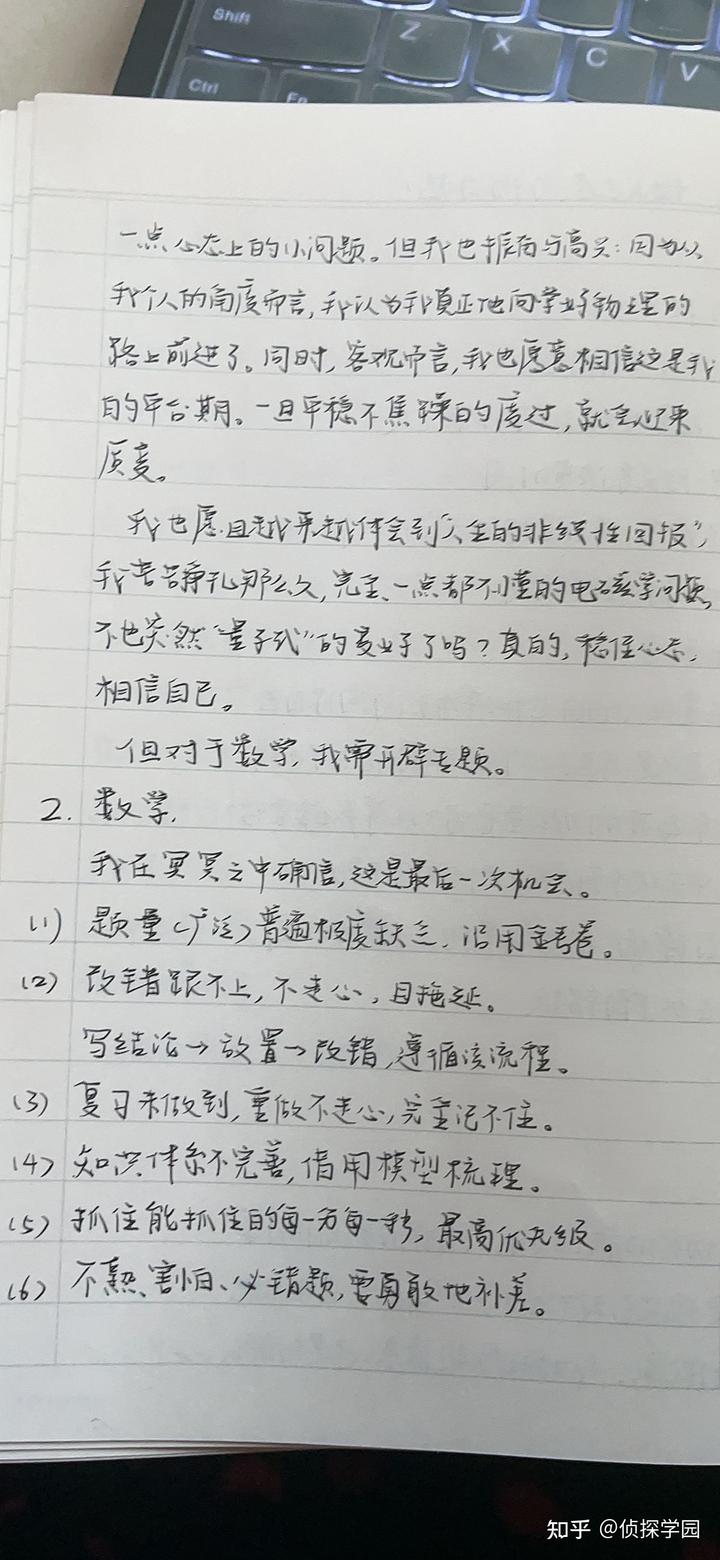 Shift
Z
X
C
V
Ctrl
Fn
一点心态上的小问题。但我也振奋与高兴:因为从
我个人的角度而言,我认为我真正地向学好物理的
路上前进了。同时,客观而言,我也愿意相信这是我
的平台期。一旦平稳不焦躁的度过,就会迎来
质变。
我也愿且越来越体会到“人生的非线性回报”,
我苦苦挣扎那么久,完全、一点都不懂的电磁学问题,
不也突然“量子式”的变好了吗?真的,稳住心态,
相信自己。
但对于数学,我需开辟专题。
2. 数学,
我在冥冥之中确信,这是最后一次机会。
(1) 题量(广泛)普遍极度缺乏,沿用金考卷。
(2) 改错跟不上,不走心,且拖延。
写结论→放置→改错,遵循该流程。
(3) 复习未做到,重做不走心,完全记不住。
(4) 知识体系不完善,借用模型梳理。
(5) 抓住能抓住的每一分每一秒,最高优先级。
(6) 不熟、害怕、必错题,要勇敢地补差。
知乎 @侦探学园